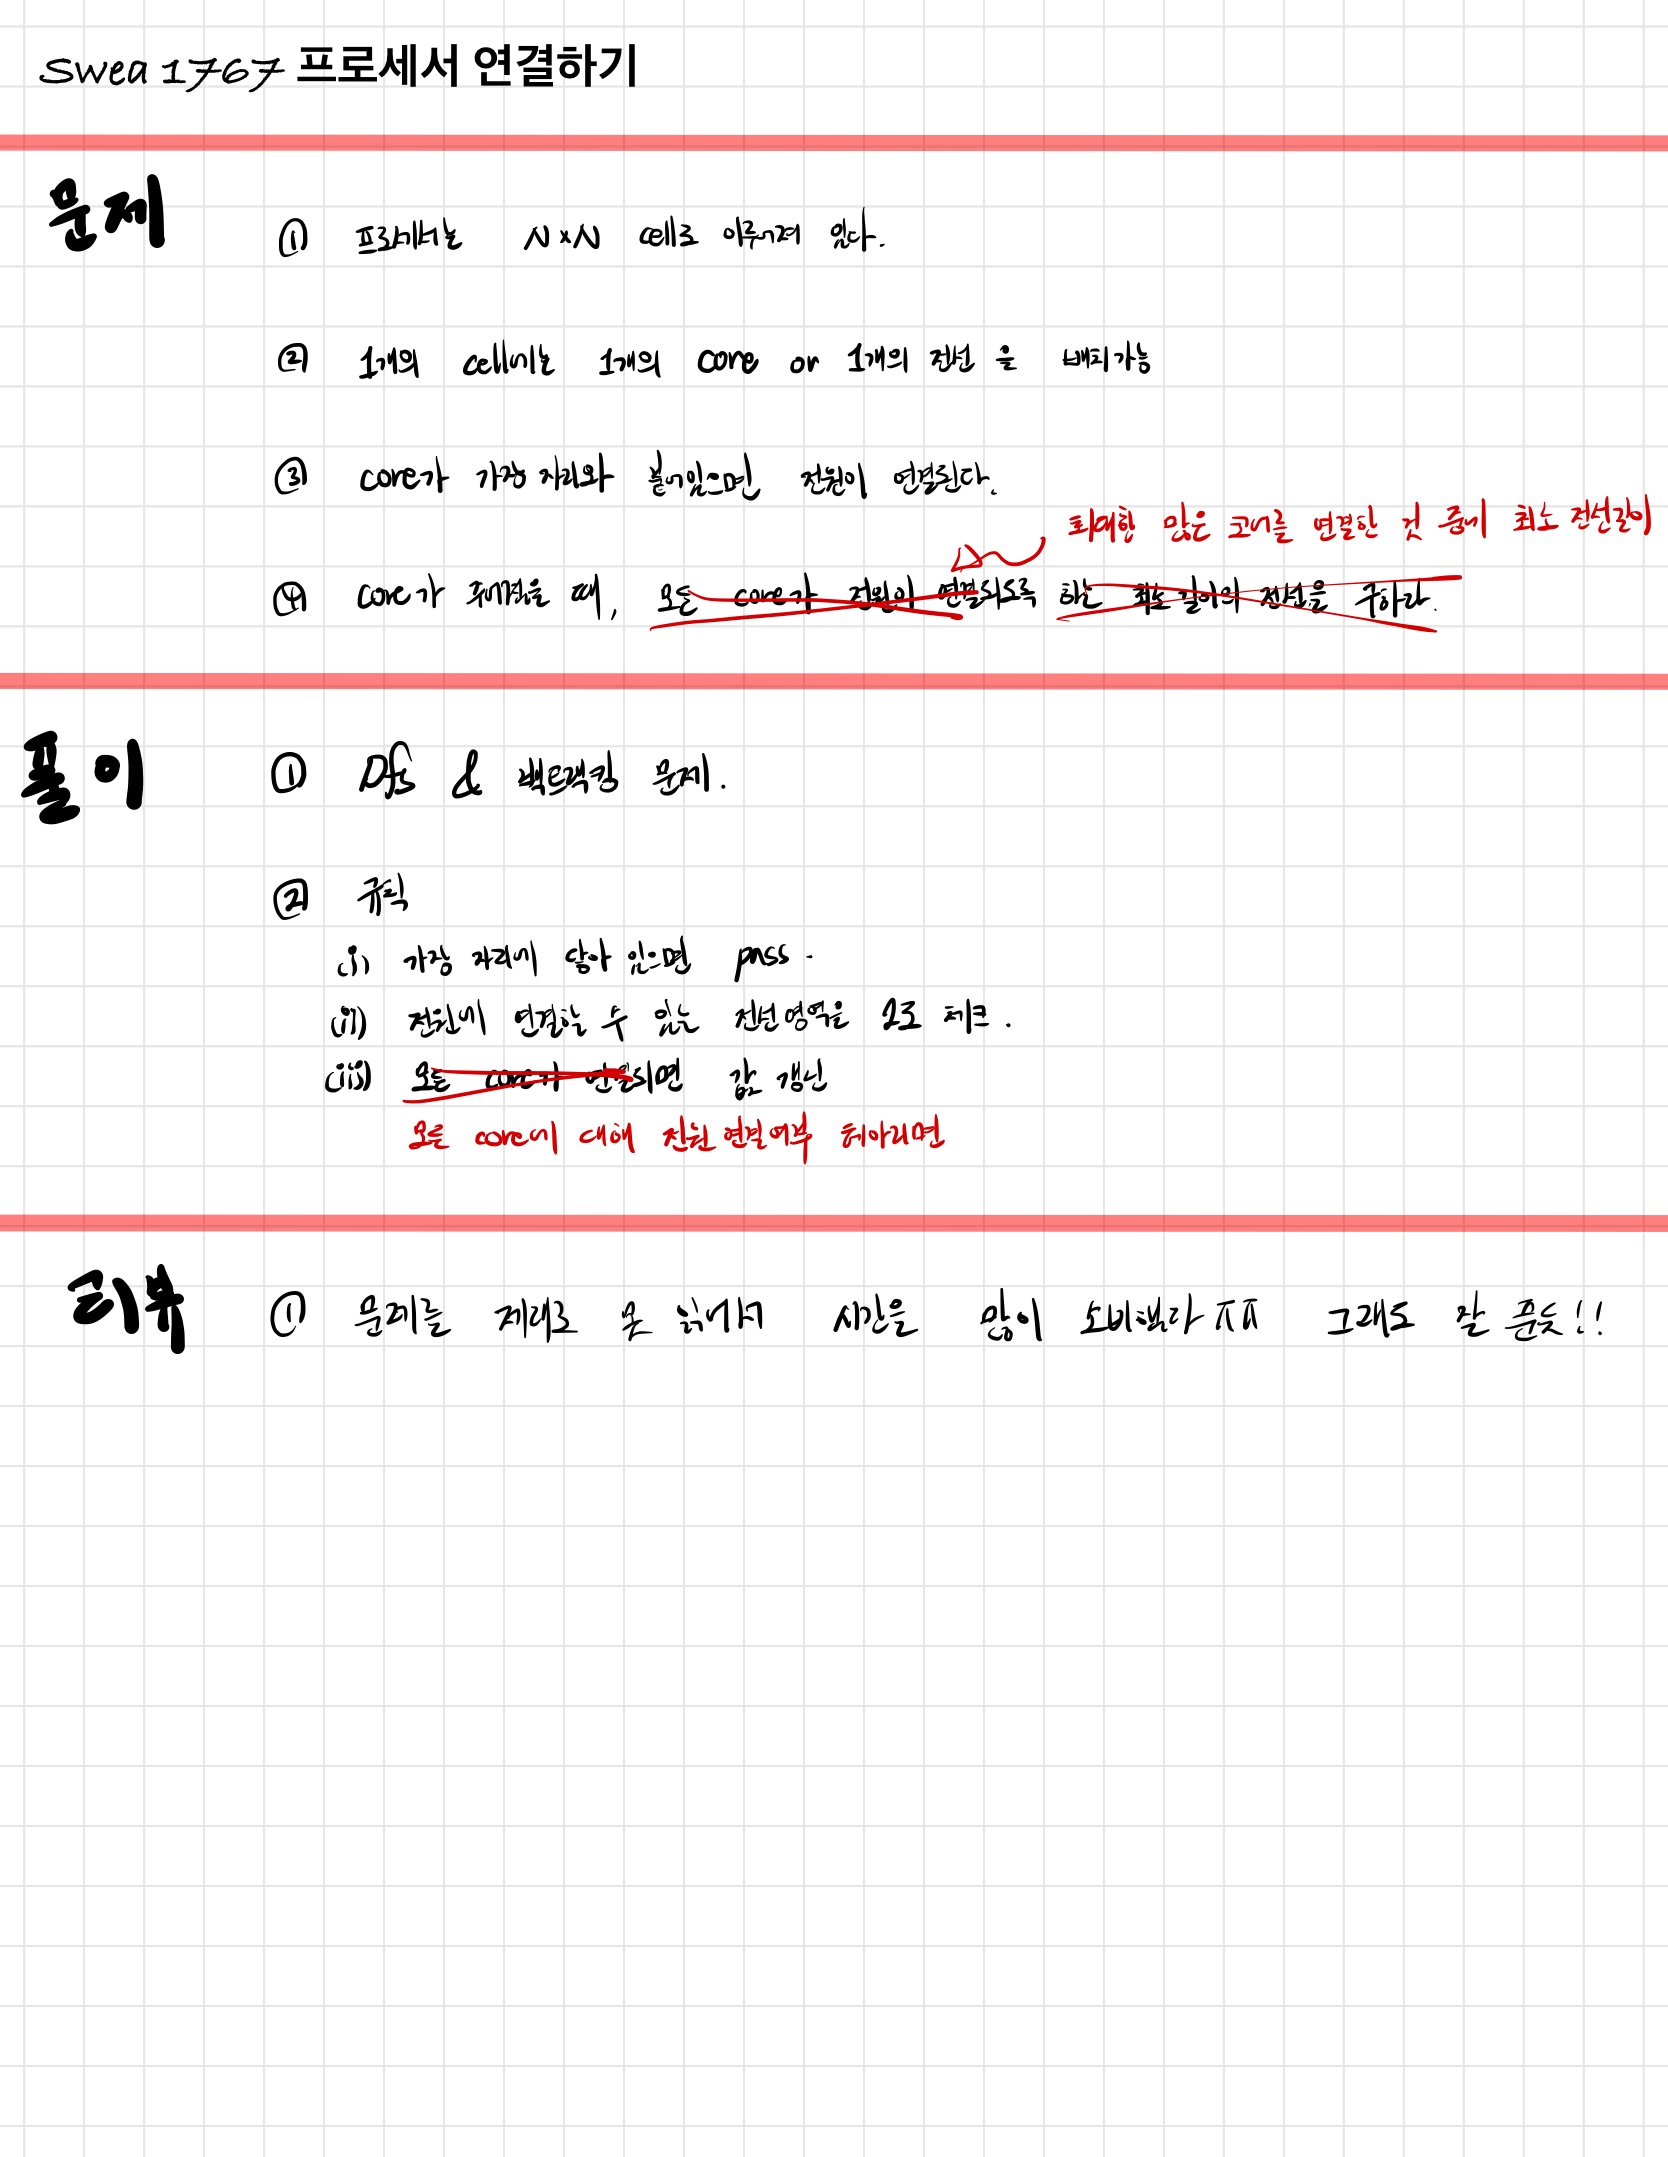 swea 1767 프로세서 연결하기
문제
① 프로세서는 N×N cell로 이루어져 있다.
② 1개의 cell에는 1개의 core or 1개의 전선 을 배치가능
③ core가 가장 자리와 붙어있으면 전원이 연결된다.
최대한 많은 코어를 연결한 것 중에 최소 전선길이
④ core가 주어졌을 때, 모든 core가 전원이 연결되도록 하는 최소 길이의 전선을 구하라.
풀이
① Dfs & 백트랙킹 문제.
② 규칙
(i) 가장 자리에 닿아 있으면 pass.
(ii) 전원에 연결할 수 있는 전선영역을 2로 체크.
(iii) 모든 core가 연결되면 값 갱신
모든 core에 대해 전원 연결여부 헤아리면
리뷰
① 문제를 제대로 못 읽어서 시간을 많이 소비했다ㅠㅠ 그래도 잘 푼듯!!